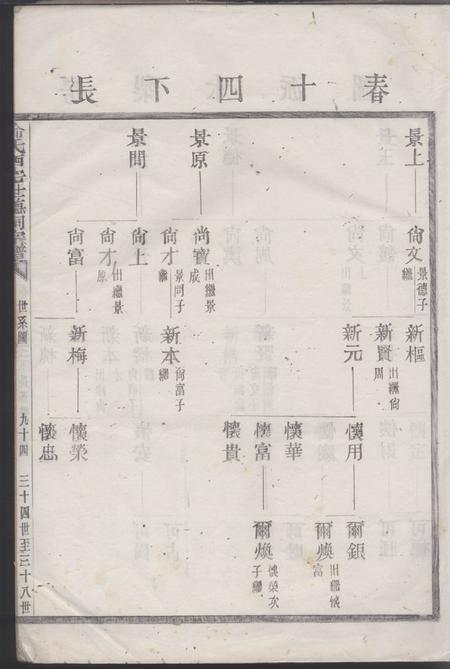 春十四下張
景上
景原
景間
尙文 景德子繼
尙寶 出繼景成
尙才 景間子繼
尙上
尙才 出繼景原
尙富
新樞
新賢 出繼尙周
新元
新本 尙富子繼
新梅
懷用
懷華
懷富
懷貴
懷榮
懷忠
爾銀
爾煥 出繼懷富
爾煥 懷榮次子繼
世系圖
九十四
三十四世至三十八世